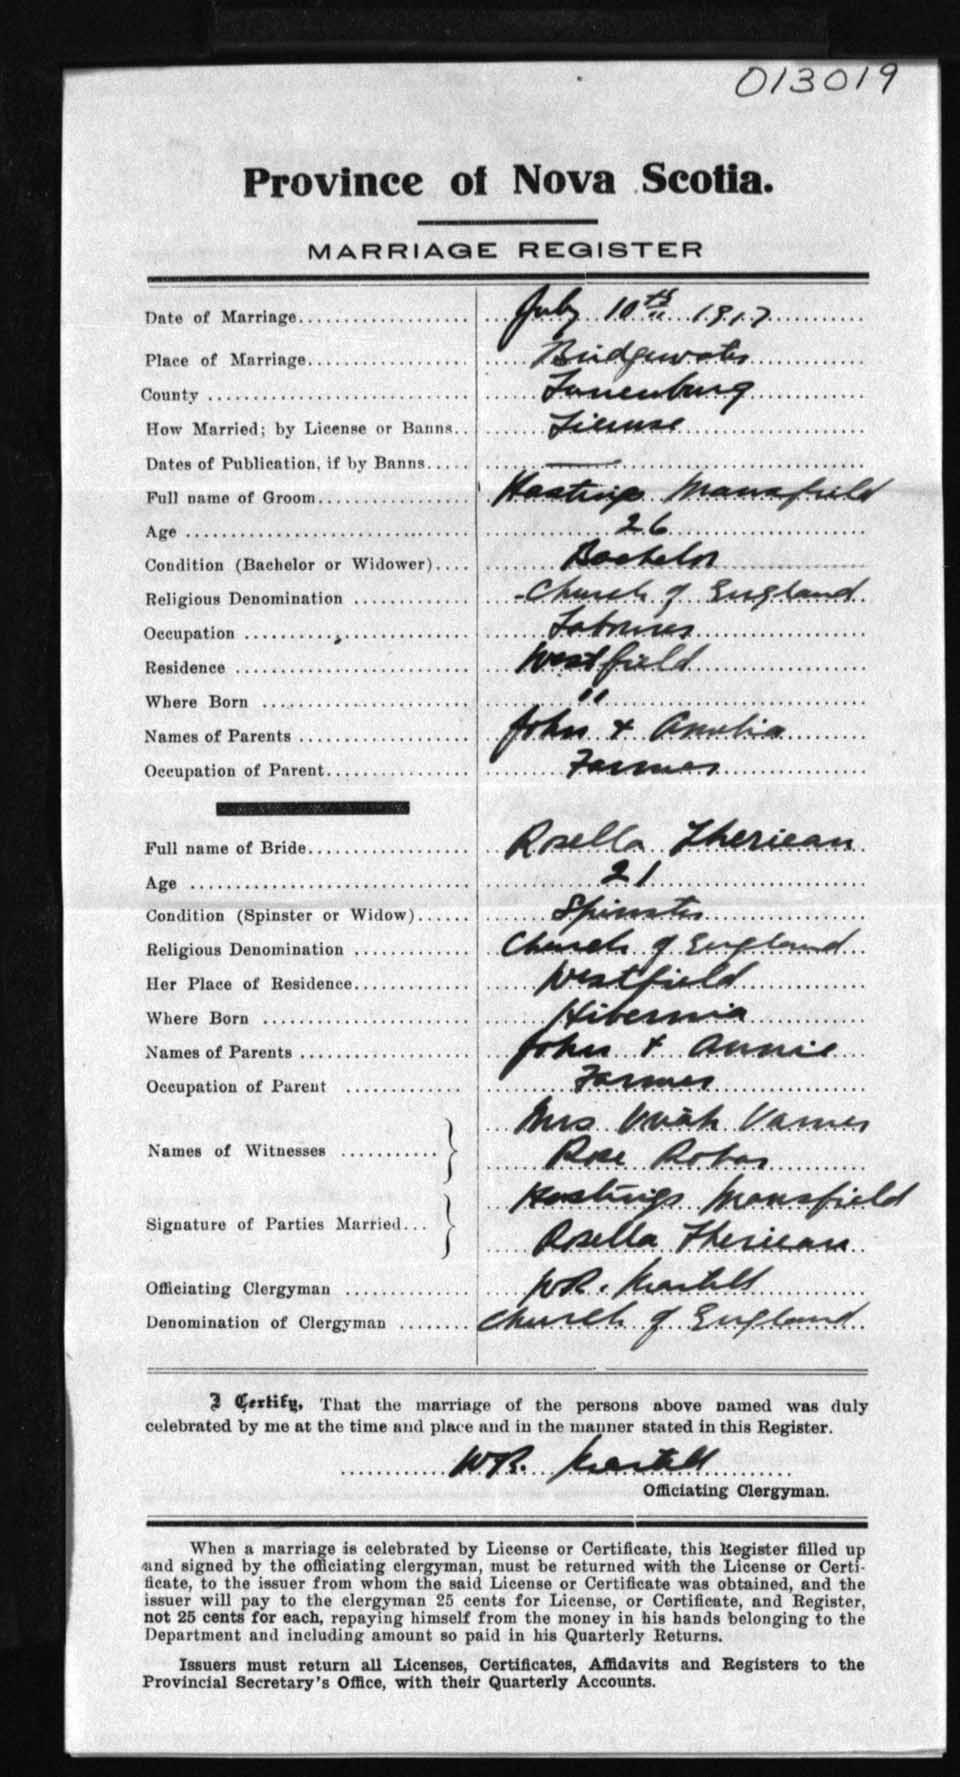 013019
Province of Nova Scotia.
MARRIAGE REGISTER
Date of Marriage July 10th 1917
Place of Marriage Bridgewater
County Lunenburg
How Married; by License or Banns License
Dates of Publication, if by Banns —
Full name of Groom Hastings Mansfield
Age 26
Condition (Bachelor or Widower) Bachelor
Religious Denomination Church of England
Occupation Labourer
Residence Westfield
Where Born "
Names of Parents John & Amelia
Occupation of Parent Farmer
Full name of Bride Rosella Theriean
Age 21
Condition (Spinster or Widow) Spinster
Religious Denomination Church of England
Her Place of Residence Westfield
Where Born Hibernia
Names of Parents John & Annie
Occupation of Parent Farmer
Names of Witnesses Mrs Uriah Varner
Rose Robar
Signature of Parties Married Hastings Mansfield
Rosella Theriean
Officiating Clergyman W.R. Martell
Denomination of Clergyman Church of England
I Certify, That the marriage of the persons above named was duly
celebrated by me at the time and place and in the manner stated in this Register.
W.R. Martell
Officiating Clergyman.
When a marriage is celebrated by License or Certificate, this Register filled up
and signed by the officiating clergyman, must be returned with the License or Certi-
ficate, to the issuer from whom the said License or Certificate was obtained, and the
issuer will pay to the clergyman 25 cents for License, or Certificate, and Register,
not 25 cents for each, repaying himself from the money in his hands belonging to the
Department and including amount so paid in his Quarterly Returns.
Issuers must return all Licenses, Certificates, Affidavits and Registers to the
Provincial Secretary's Office, with their Quarterly Accounts.